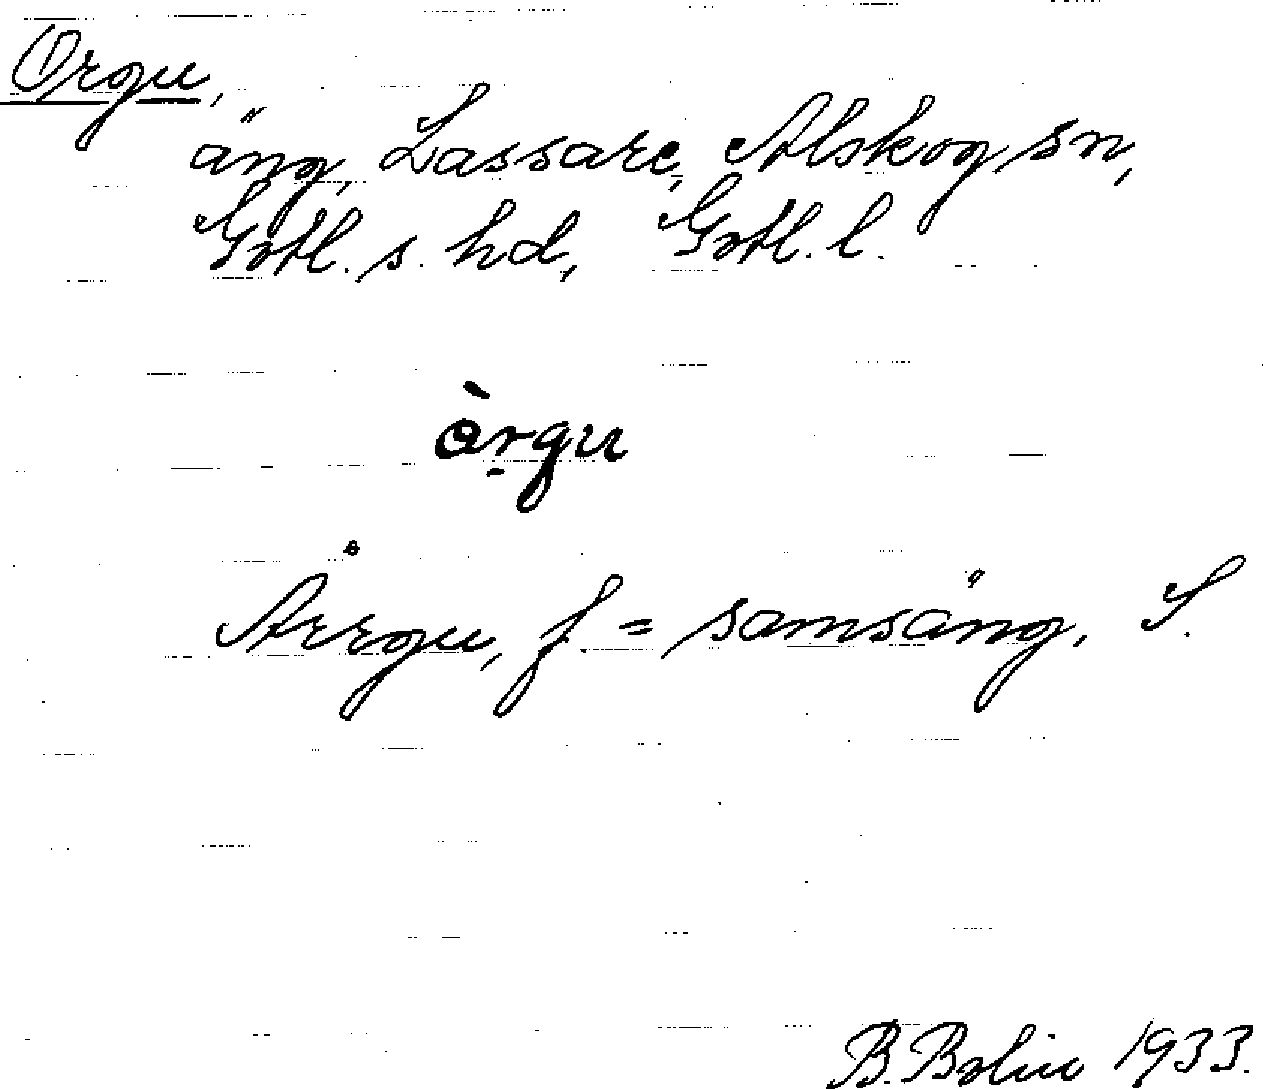 Orgu,
äng, Lassare, Alskog sn,
Gotl. s. hd, Gotl. l.
òrgu
Årrgu, f = samsäng. S.
B. Bolin 1933.